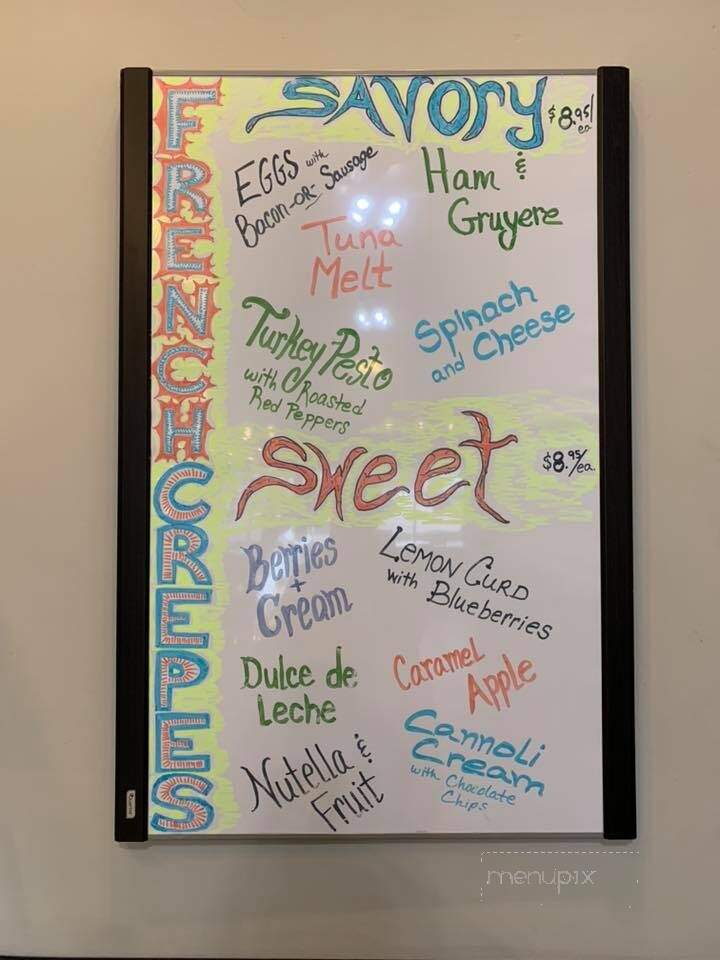 FRENCH CREPES
SAVORY $8.95/ea.
EGGS with
Bacon -OR- Sausage
Ham &
Gruyere
Tuna
Melt
Turkey Pesto
with Roasted
Red Peppers
Spinach
and Cheese
Sweet $8.95/ea.
Berries
+
Cream
LEMON CURD
with Blueberries
Dulce de
Leche
Caramel
Apple
Nutella &
Fruit
Cannoli
Cream
with Chocolate
Chips
menupix